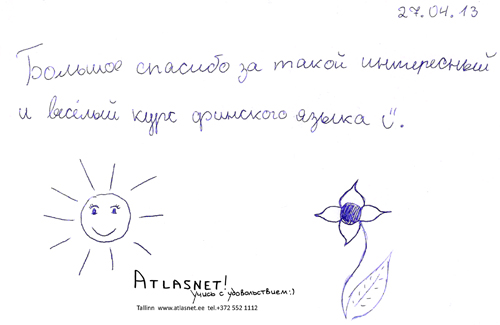 27.04.13
Большое спасибо за такой интересный
и весёлый курс финского языка ü.
ATLASNET!
учись с удовольствием:)
Tallinn www.atlasnet.ee tel.+372 552 1112